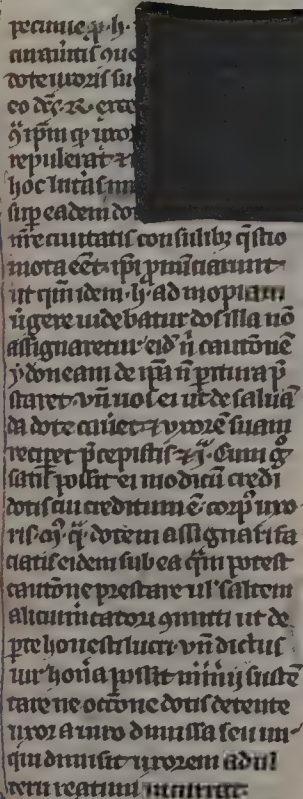 pecunie p. h.
dote uxoris su
eo
q̄ ip̄m
repulerat ⁊
hoc
sup eadem do
nr̄e ciuitatis consulibꝫ q̄stio
mota eēt ip̄i ꝓnūciarunt
ut qm̄ idem .h. ad inopiam
ũgere uidebatur dos illa nō
assignaretur eid̄ ñ cautōnē
ydoneam de ip̄a ñ pitura p̄
staret. vñ uos ei ut de saluā
da dote cauet ⁊ vxorē suam
recipet p̄cepistis ⁊ q̄. Cum g̊
satis possit ei modicū credi
dotis cui creditum ē corpꝰ uxo
ris. dotem assignari fa
ciatis eidem sub ea q̄m potest
cautōne prestare ul' saltem
alicui mcatori ꝯmitti ut de
pte honesti lucri. vñ dictus
uir hon̄a possit m̄rīōij sustē
tare ne occōne dotis detente
uxor a uiro dimissa seu uir
qui dimisit uxorem adul
terii reatum incurrat.